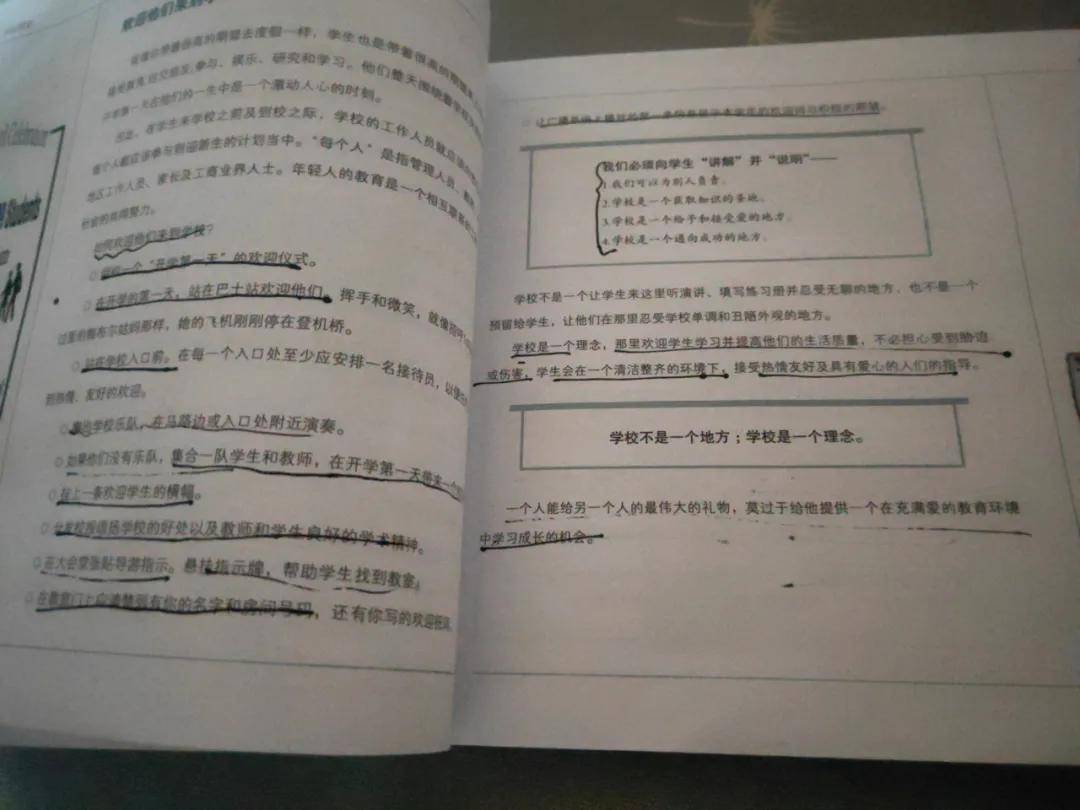 欢迎他们来到
就像你带着很高的期望去度假一样，学生也是带着很高的期望
参与、娱乐、研究和学习。他们整天围绕着学校
开学第一天在他们的一生中是一个激动人心的时刻。
因此，在学生来学校之前及到校之际，学校的工作人员就应该
每个人都应该参与到迎新生的计划当中。“每个人”是指管理人员、教师
地区工作人员、家长及工商业界人士。年轻人的教育是一个相互联系的
社会的共同努力。
如何欢迎他们来到学校？
○组织一个“开学第一天”的欢迎仪式。
○在开学的第一天，站在巴士站欢迎他们。挥手和微笑，就像
过里的梅布尔姑妈那样，她的飞机刚刚停在登机桥。
○站在学校入口前。在每一个入口处至少应安排一名接待员，以便
到热情、友好的欢迎。
学校乐队，在马路边或入口处附近演奏。
○如果他们没有乐队，集合一队学生和教师，在开学第一天带来一个
○挂上一条欢迎学生的横幅。
○分发校报颂扬学校的好处以及教师和学生良好的学术精神。
○在大会堂张贴导游指示。悬挂指示牌，帮助学生找到教室。
○在教室门上应清楚到有你的名字和房间号码，还有你写的欢迎
Students
○ 让广播
我们必须向学生“讲解”并“说明”——
1.我们可以为别人负责。
2.学校是一个获取知识的圣地。
3.学校是一个给予和接受爱的地方。
4.学校是一个通向成功的地方。
学校不是一个让学生来这里听演讲、填写练习册并忍受无聊的地方，也不是一个
预留给学生，让他们在那里忍受学校单调和丑陋外观的地方。
学校是一个理念，那里欢迎学生学习并提高他们的生活质量，不必担心受到胁迫
或伤害，学生会在一个清洁整齐的环境下，接受热情友好及具有爱心的人们的指导。
学校不是一个地方；学校是一个理念。
一个人能给另一个人的最伟大的礼物，莫过于给他提供一个在充满爱的教育环境
中学习成长的机会。